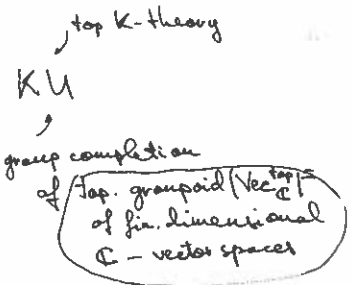 top K-theory
KU
group completion
of top. groupoid (Vec_ℂ^top)^≃
of fin. dimensional
ℂ - vector spaces